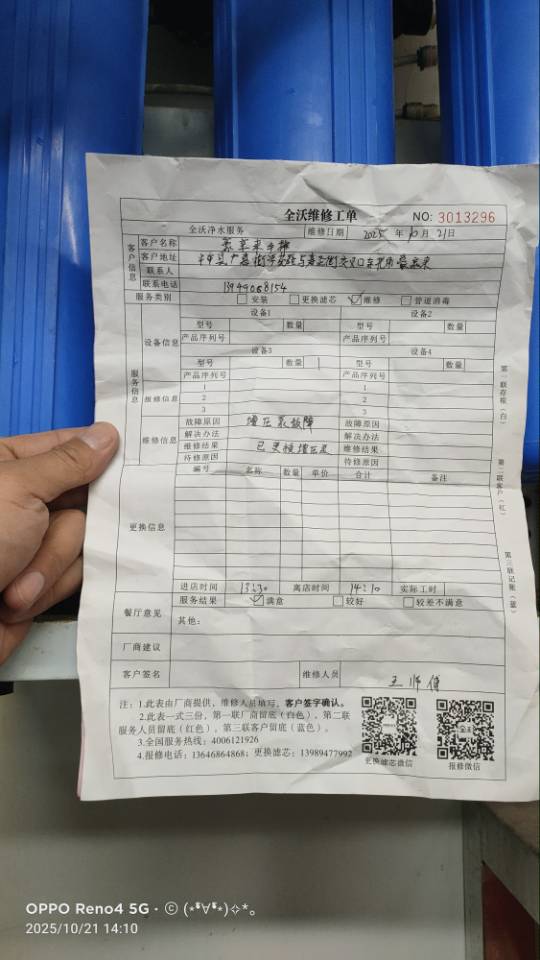 全沃维修工单 NO: 3013296
全沃净水服务 维修日期 2025 年 10 月 21 日
客户信息
客户名称
客户地址
联系人
联系电话
服务类别 安装 更换滤芯 维修 管道消毒
服务信息
设备信息
设备1 设备2
型号 数量 型号 数量
产品序列号 产品序列号
设备3 设备4
型号 数量 1 型号 数量
产品序列号 产品序列号
报修信息
1 1
2 2
3 3
维修信息
故障原因 增压泵故障 故障原因
解决办法 解决办法
维修结果 已更换增压泵 维修结果
待修原因 待修原因
更换信息
编号 名称 数量 单价 合计 备注
进店时间 13:30 离店时间 14:10 实际工时
餐厅意见
服务结果 满意 较好 较差不满意
其他:
厂商建议
客户签名 维修人员 王师傅
注: 1.此表由厂商提供，维修人员填写，客户签字确认。
2.此表一式三份，第一联厂商留底（白色），第二联
服务人员留底（红色），第三联客户留底（蓝色）。
3.全国服务热线: 4006121926
4.报修电话: 13646864868; 更换滤芯: 13989477992
更换滤芯微信 报修微信
第一联存根（白）
第二联客户（红）
第三联记账（蓝）
OPPO Reno4 5G · ©
2025/10/21 14:10